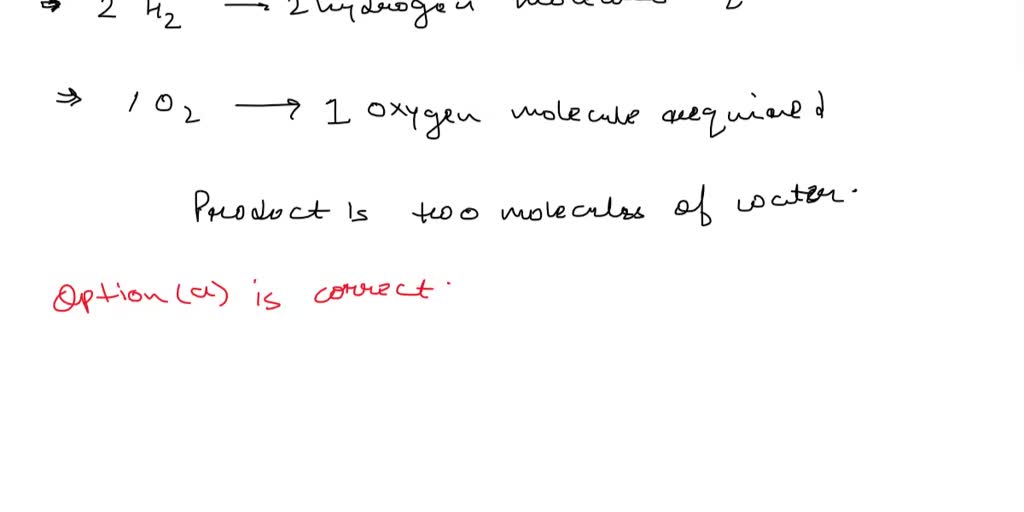 ⇒ 2 H2 → 2 hydrogen
⇒ 1 O2 → 1 oxygen molecule required
Product is two molecules of water.
Option (a) is correct.